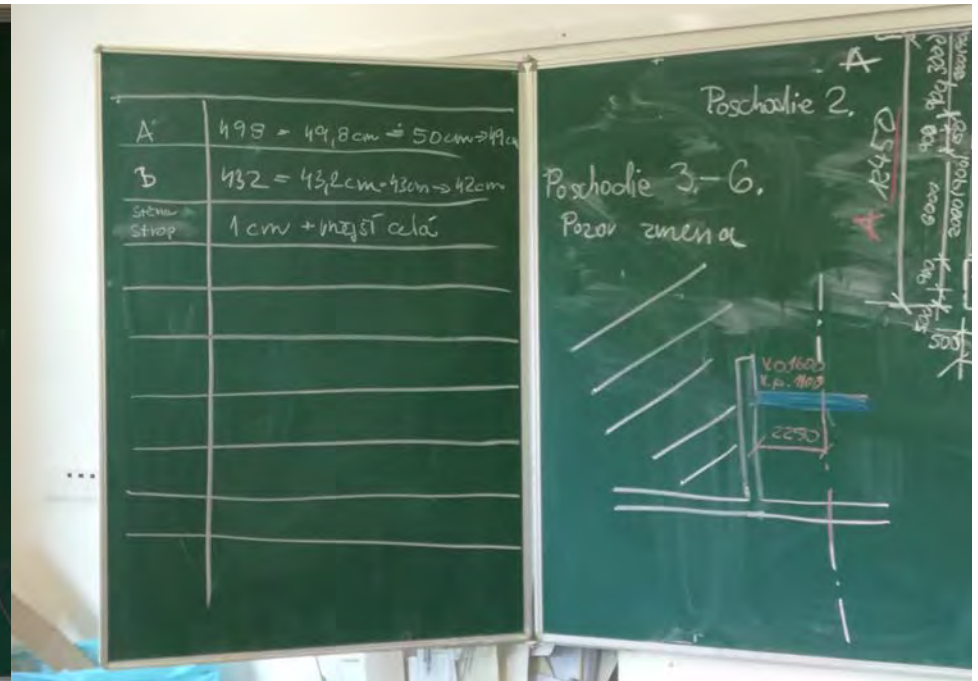 A 498 = 49,8cm ≐ 50cm → 49cm
B 432 = 43,2cm = 43cm → 42cm
Stěna
Strop
1 cm + vnější celá
A
Poschodie 2.
Poschodie 3.-6.
Pozor zmena
A 12450
500 900 6000 900
500
v.o.1600
v.p. 1100
2250